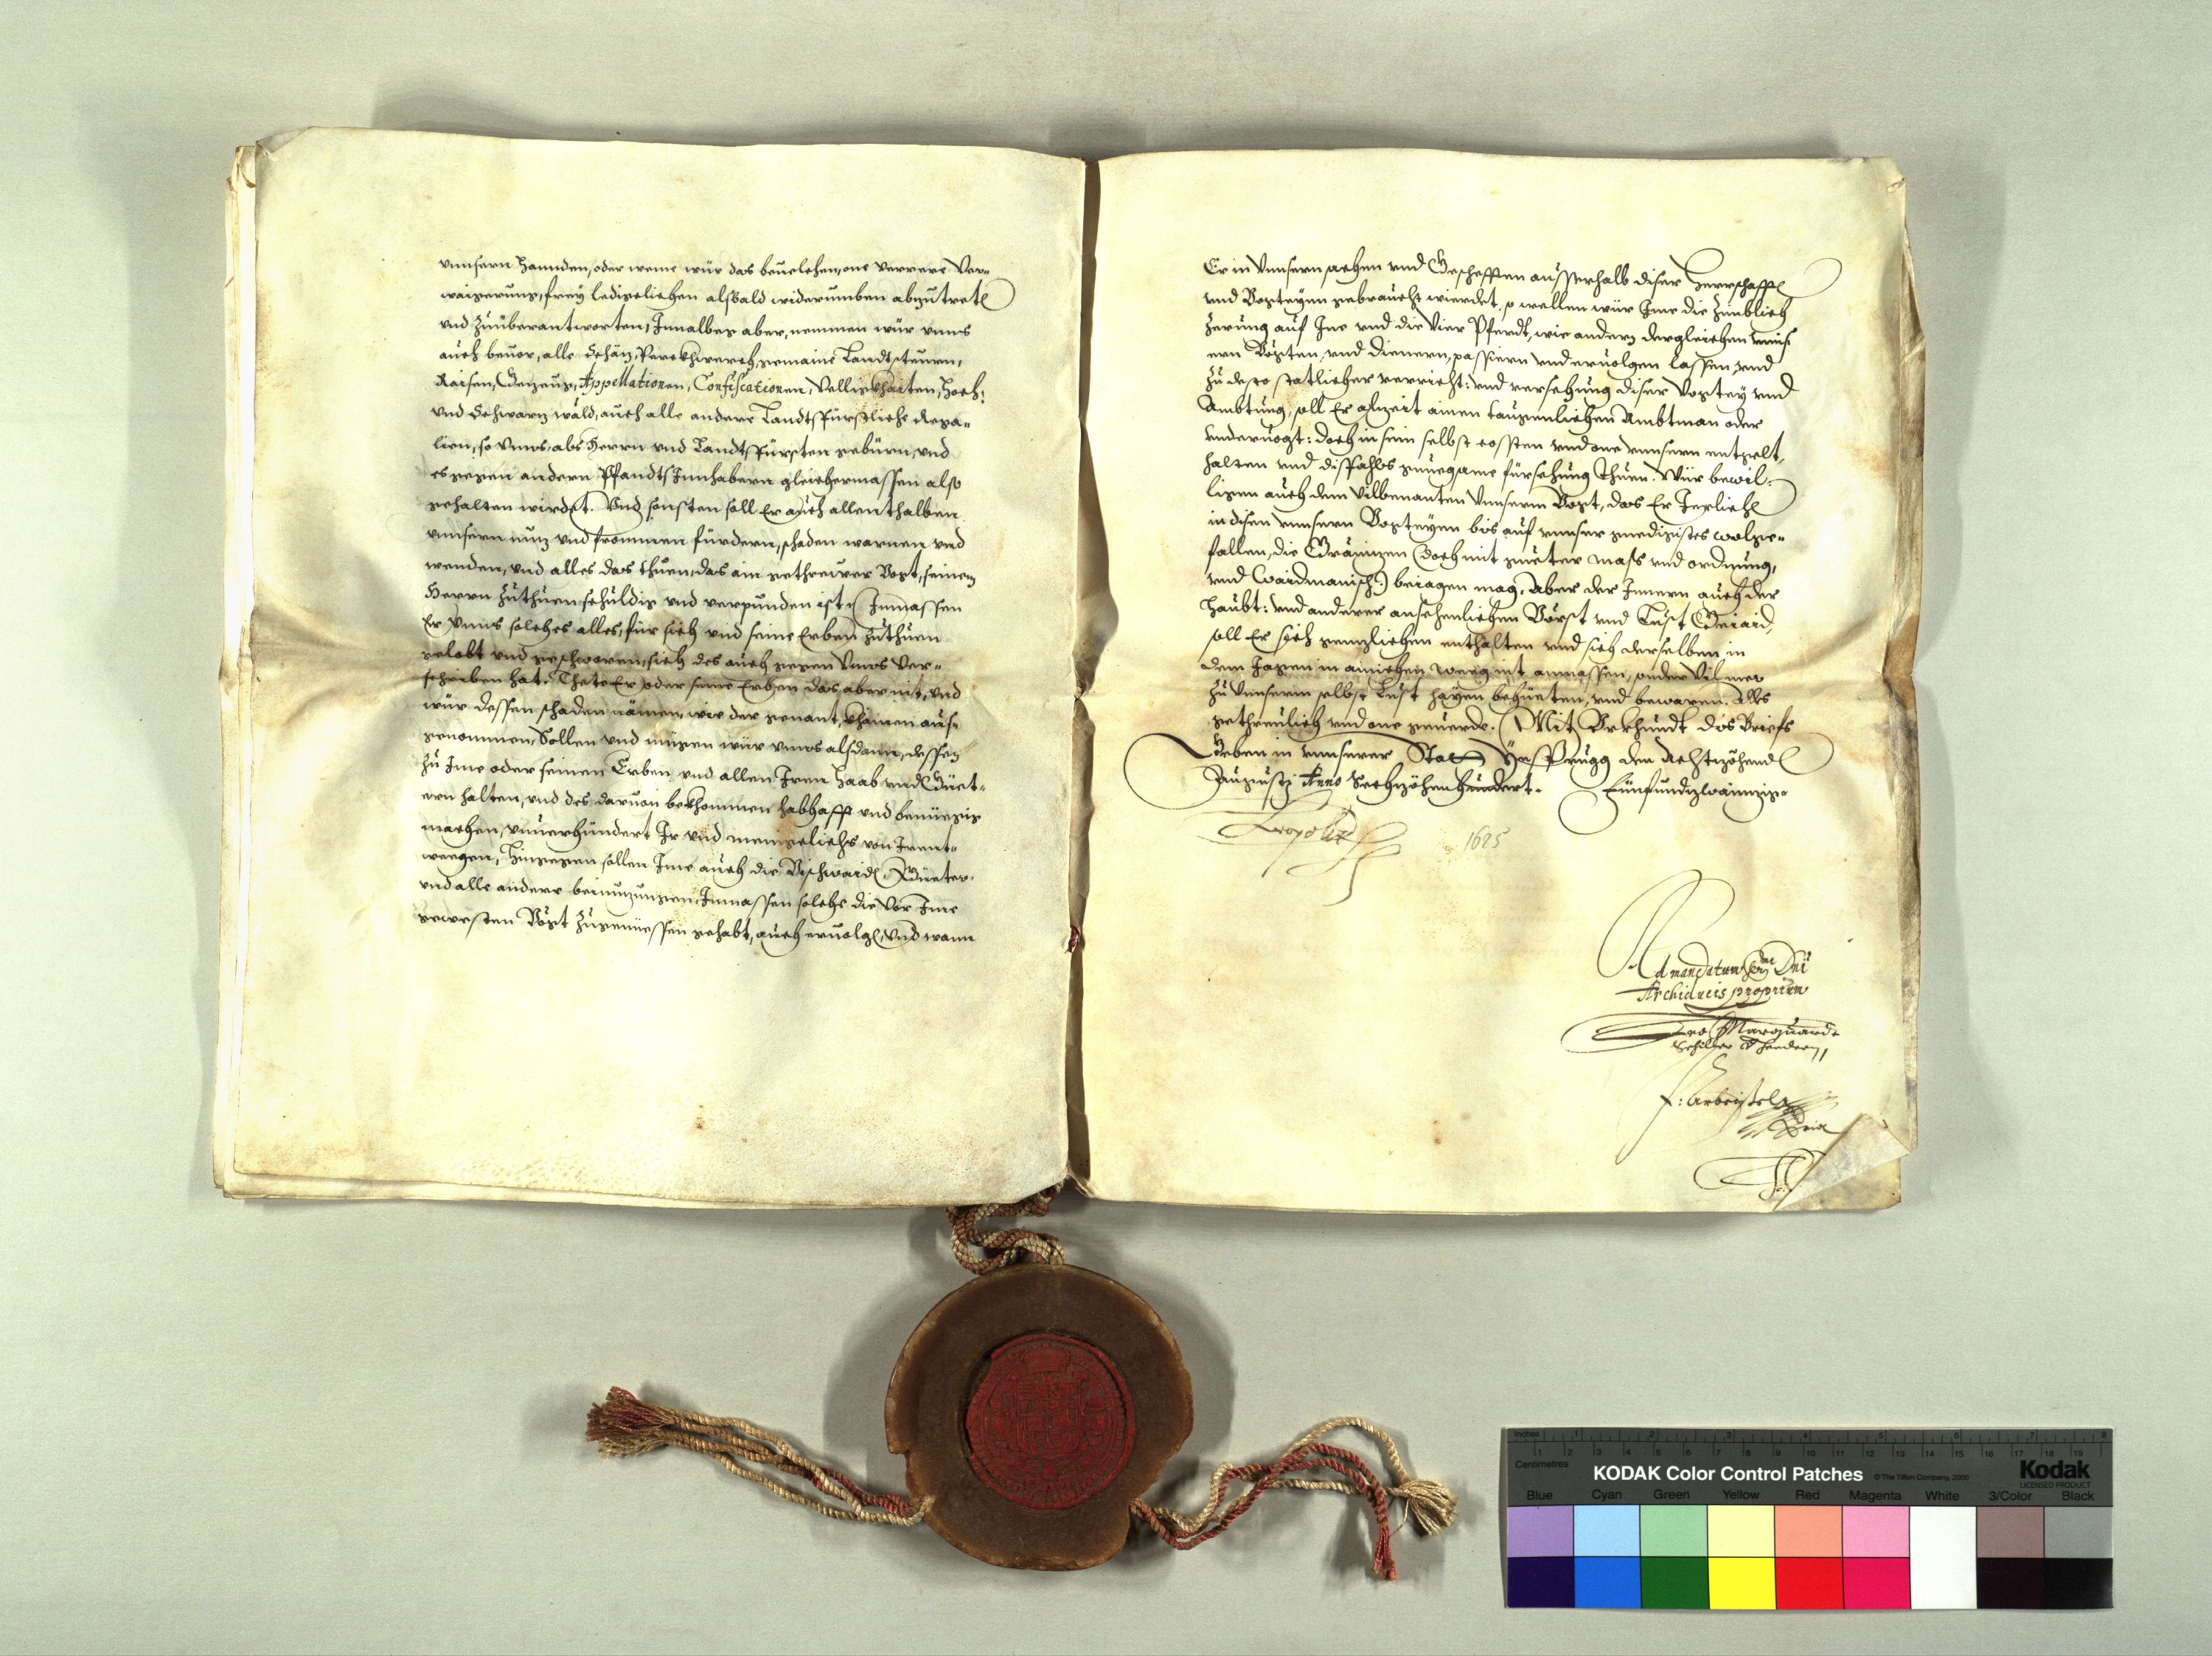 vnnsern Hannden, oder weme wür das beuelchen, one verrere Ver-
waigerung, frey lediselichen alsbald widerumben abzutreten
vnd Zuüberantworten, Innalbeg aber, nemmen wür vnns
auch beuor, alle Schäz, Perckhwerch, gemaine Landtsteurn,
Raisen, Gezeug, Appellationen, Confiscationen, Velligkhaiten, Hoch:
vnd Schwarz wäld, auch alle andere Landtsfürstliche Rega-
lien, so Vnns, als Herrn vnd Landtsfürsten gebürn, vnd
es gegen andern Pfandts Innhabern gleichermassen also
gehalten wirdet. Vnd sonsten soll Er auch allenthalben
vnnsern nuz vnd frommen fürdern, schaden warnen vnd
wenden, vnd alles das thuen, das ain gethreüer Vogt, seinem
Herrn Zuthuen schuldig vnd verpunden ist, Inmassen
Er Vnns solches alles, für sich vnd seine Erben Zuthuen
gelobt vnd geschworen, sich des auch gegen Vnns Ver-
schriben hat. Thete Er oder seine Erben das aber nit, vnd
wür dessen schaden nämen, wie der genant, khainen aus-
genommen, Sollen vnd mügen wür vnns alsdann, dessen
Zu Ime oder seinen Erben vnd allen Iren Haab vnd Güet-
ern halten, vnd des daruon bekhommen habhafft vnd benüegig
machen, vnuerhündert Ir vnd menigeliches von Irent-
weegen, Hingegen sollen Ime auch die Vischwaid, Güeter,
vnd alle andere beinuzungen, Inmassen solche die Vor Ime
gewesten Vögt Zugeniessen gehabt, auch eruolgen, Vnd wann
Er in Vnnsern sachen vnd Geschefften ausserhalb diser Herrschafft
vnd Vogteyen gebraucht wierdet, so wellen wür Ime die Zimblich
Zerung auf Ine vnd die Vier Pferdt, wie andern dergleichen vnns-
ern Vögten, vnd Dienern, passiern vnd eruolgen lassen, vnd
Zu desto statlicher verricht: vnd versehung diser Vogtey vnd
Ambtung, soll Er alzeit ainen taugenlichen Ambtman oder
vnderuogt: doch in sein selbst costen vnd one vnnsern entgelt,
halten vnd dissfahls gnuegsame fürsehung Thuen. Wür bewil-
ligen auch dem Vilbenanten Vnnserm Vogt, das Er Jerlich
in disen vnnsern Vogteyen bis auf vnnser gnedigistes wolge-
fallen, die Gränizen (doch mit gueter mass vnd ordnung,
vnd Waidmanisch) beiagen mag, Aber der Innern auch der
Haubt: vnd anderer ansehenlichen Vörst vnd Lust Geiaid,
soll Er sich genzlichen enthalten vnd sich derselben in
dem Jagen in ainichen weeg nit anmassen, sonder Vilmer
Zu Vnnserm selbst Lust hayen behüeten, vnd bewaren. Alls
gethreulich vnd one geuerde. Mit Vrkhundt dis Briefs
Geben in vnnserer Stat Ynssprugg den Achtzöhenden
Augusti Anno Sechzöhenhundert. Fünfundzwainzig.
Leopold
1625
Ad mandatum Sermi Dni
Archiducis proprium